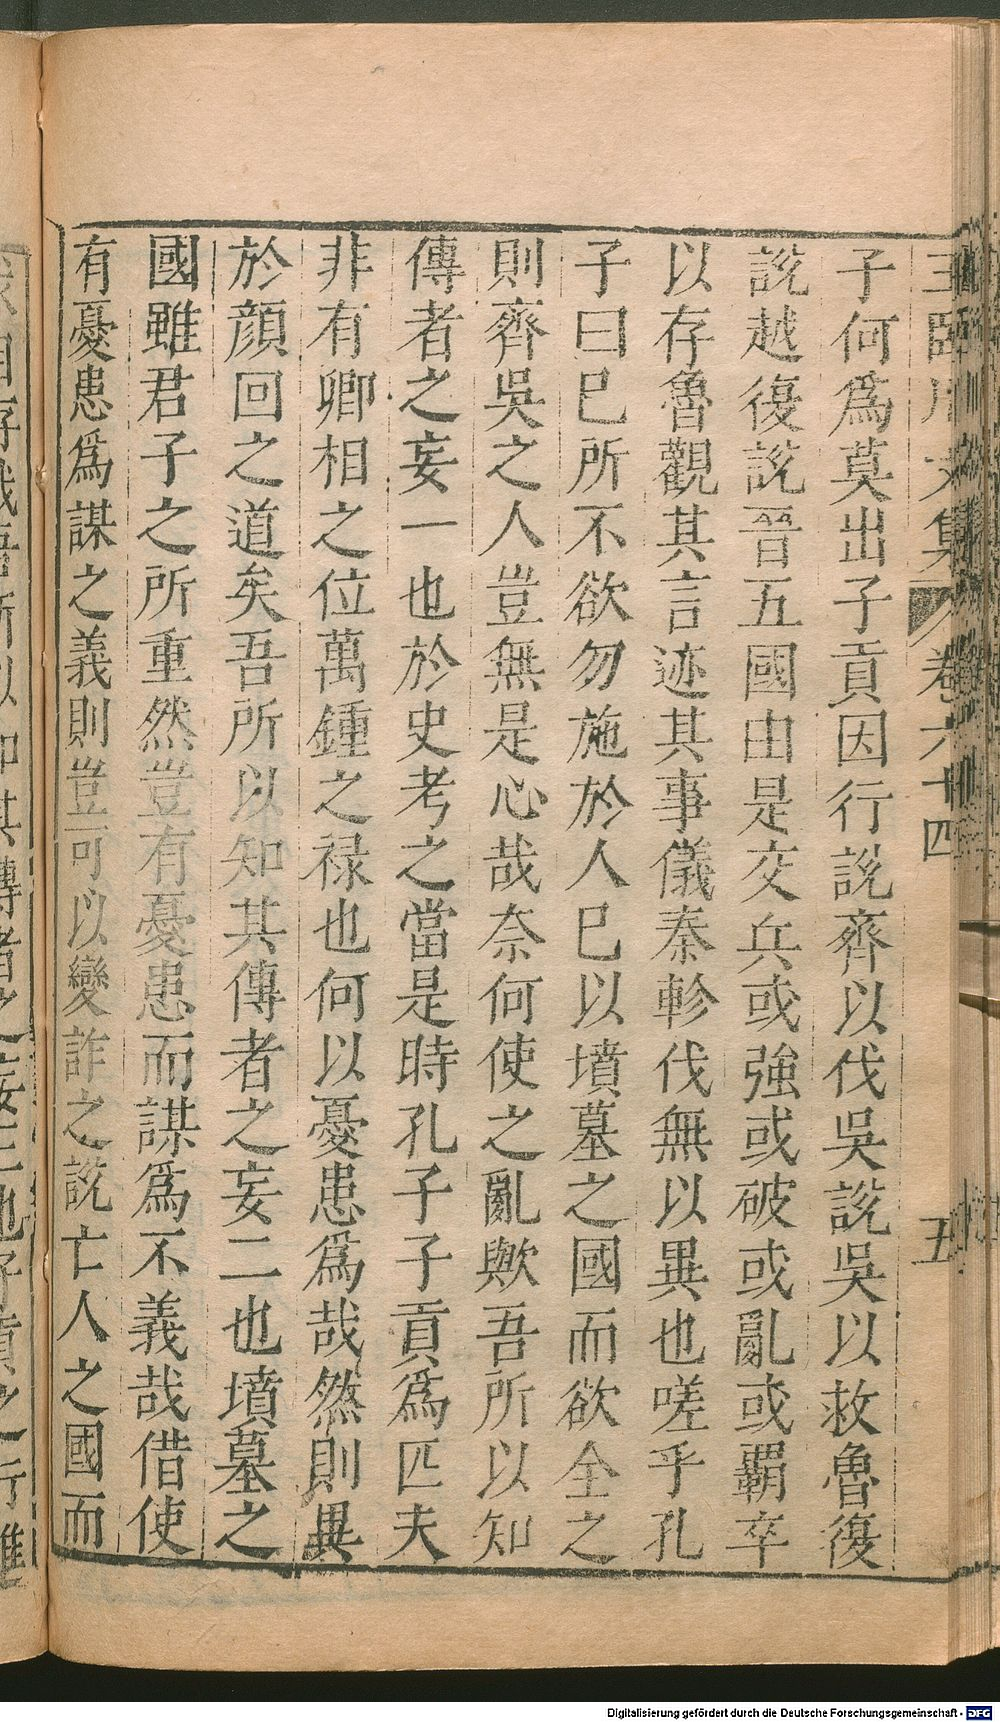 子何爲莫出子貢因行說齊以伐吳說吳以救魯復
說越復說晉五國由是交兵或強或破或亂或覇卒
以存魯觀其言迹其事儀秦軫伐無以異也嗟乎孔
子曰巳所不欲勿施於人巳以墳墓之國而欲全之
則齊吳之人豈無是心哉奈何使之亂歟吾所以知
傳者之妄一也於史考之當是時孔子子貢爲匹夫
非有卿相之位萬鍾之祿也何以憂患爲哉然則異
於顏回之道矣吾所以知其傳者之妄二也墳墓之
國雖君子之所重然豈有憂患而謀爲不義哉借使
有憂患爲謀之義則豈可以變詐之說亡人之國而
卷六十四
五
Digitalisierung gefördert durch die Deutsche Forschungsgemeinschaft - DFG